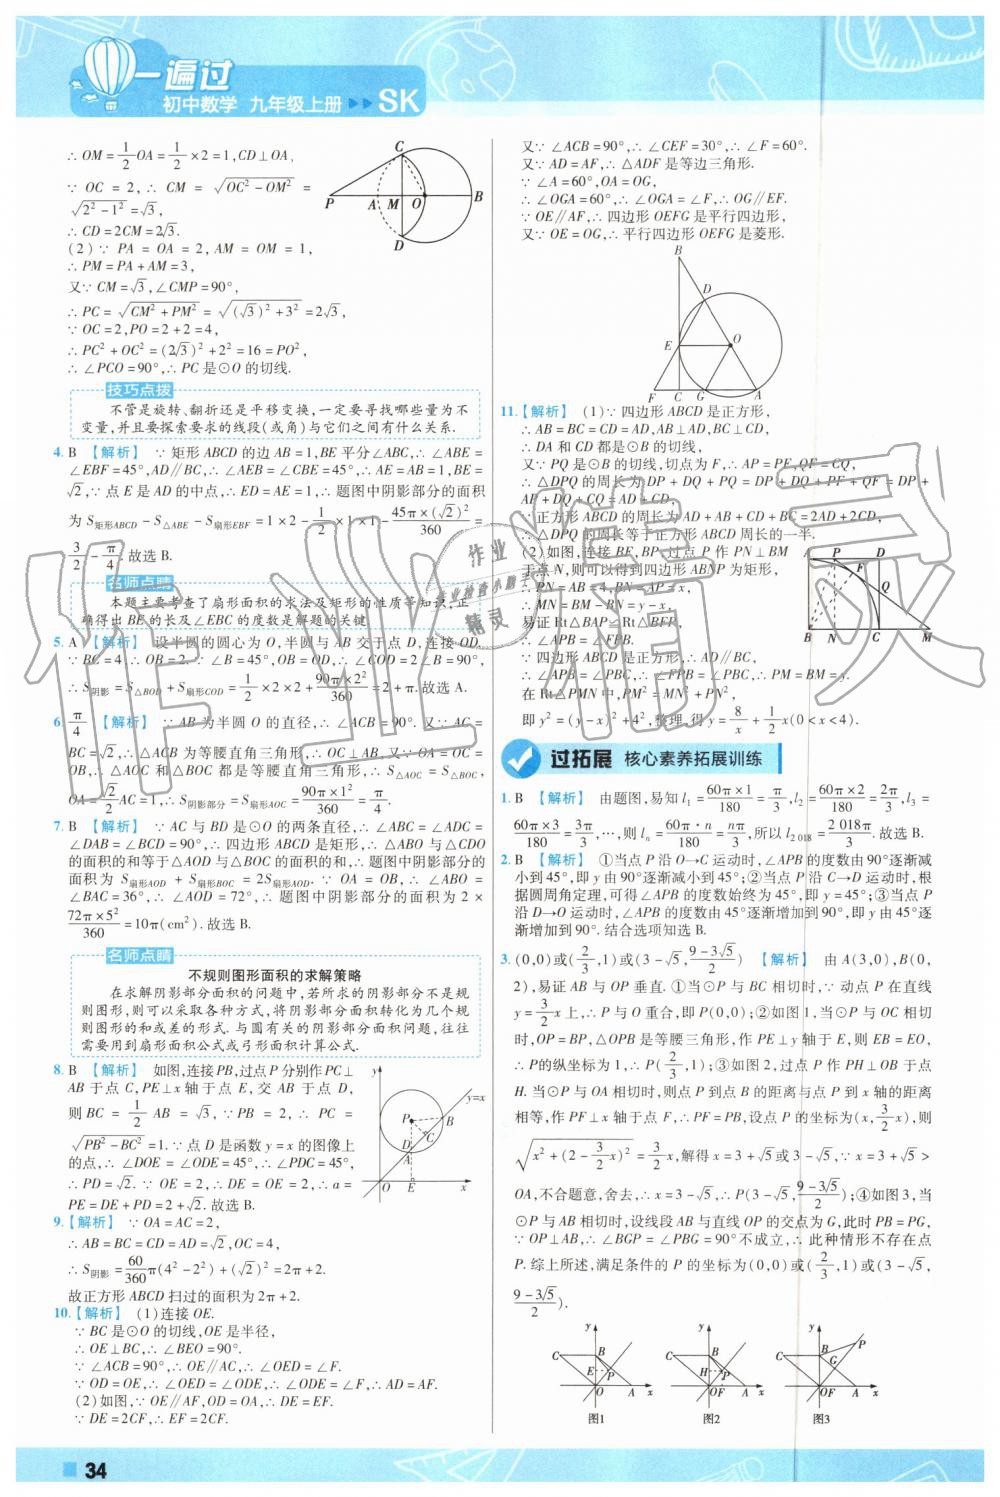 一遍过
初中数学 九年级上册 SK
∴ OM=1/2OA=1/2×2=1,CD⊥OA,
∵ OC=2,∴ CM=√(OC²-OM²)=
√(2²-1²)=√3,
∴ CD=2CM=2√3.
(2)∵ PA=OA=2,AM=OM=1,
∴ PM=PA+AM=3,
又∵ CM=√3,∠CMP=90°,
∴ PC=√(CM²+PM²)=√((√3)²+3²)=2√3,
∵ OC=2,PO=2+2=4,
∴ PC²+OC²=(2√3)²+2²=16=PO²,
∴ ∠PCO=90°,∴ PC是⊙O的切线.
C
P A M O B
D
技巧点拨
不管是旋转、翻折还是平移变换,一定要寻找哪些量为不
变量,并且要探索要求的线段(或角)与它们之间有什么关系.
4. B 【解析】 ∵ 矩形ABCD的边AB=1,BE平分∠ABC,∴ ∠ABE=
∠EBF=45°,AD∥BC,∴ ∠AEB=∠CBE=45°,∴ AE=AB=1,BE=
√2,∵ 点E是AD的中点,∴ ED=AE=1,∴ 题图中阴影部分的面积
为S矩形ABCD-S△ABE-S扇形EBF=1×2-1/2×1×1-45π×(√2)²/360=
3/2-π/4.故选B.
名师点睛
本题主要考查了扇形面积的求法及矩形的性质等知识,正
确得出BE的长及∠EBC的度数是解题的关键
5. A 【解析】 设半圆的圆心为O,半圆与AB交于点D,连接OD.
∵ BC=4,∴ OB=2.∵ ∠B=45°,OB=OD,∴ ∠COD=2∠B=90°,
∴ S阴影=S△BOD+S扇形COD=1/2×2×2+90π×2²/360=2+π.故选A.
6. π/4 【解析】 ∵ AB为半圆O的直径,∴ ∠ACB=90°.又∵ AC=
BC=√2,∴ △ACB为等腰直角三角形,∴ OC⊥AB,又∵ OA=OC=
OB,∴ △AOC和△BOC都是等腰直角三角形,∴ S△AOC=S△BOC,
OA=√2/2AC=1,∴ S阴影部分=S扇形AOC=90π×1²/360=π/4.
7. B 【解析】 ∵ AC与BD是⊙O的两条直径,∴ ∠ABC=∠ADC=
∠DAB=∠BCD=90°,∴ 四边形ABCD是矩形,∴ △ABO与△CDO
的面积的和等于△AOD与△BOC的面积的和,∴ 题图中阴影部分的
面积为S扇形AOD+S扇形BOC=2S扇形AOD.∵ OA=OB,∴ ∠ABO=
∠BAC=36°,∴ ∠AOD=72°,∴ 题图中阴影部分的面积为2×
72π×5²/360=10π(cm²).故选B.
名师点睛
不规则图形面积的求解策略
在求解阴影部分面积的问题中,若所求的阴影部分不是规
则图形,则可以采取各种方式,将阴影部分面积转化为几个规
则图形的和或差的形式.与圆有关的阴影部分面积问题,往往
需要用到扇形面积公式或弓形面积计算公式.
8. B 【解析】 如图,连接PB,过点P分别作PC⊥
AB于点C,PE⊥x轴于点E,交AB于点D,
则BC=1/2AB=√3,∵ PB=2,∴ PC=
√(PB²-BC²)=1.∵ 点D是函数y=x的图像上
的点,∴ ∠DOE=∠ODE=45°,∴ ∠PDC=45°,
∴ PD=√2.∵ OE=2,∴ DE=OE=2,∴ a=
PE=DE+PD=2+√2.故选B.
y
y=x
P B
D C
A
O E x
9.【解析】 ∵ OA=AC=2,
∴ AB=BC=CD=AD=√2,OC=4,
∴ S阴影=60/360π(4²-2²)+(√2)²=2π+2.
故正方形ABCD扫过的面积为2π+2.
10.【解析】 (1)连接OE.
∵ BC是⊙O的切线,OE是半径,
∴ OE⊥BC,∴ ∠BEO=90°.
∵ ∠ACB=90°,∴ OE∥AC,∴ ∠OED=∠F.
∵ OD=OE,∴ ∠OED=∠ODE,∴ ∠ODE=∠F,∴ AD=AF.
(2)如图,∵ OE∥AF,OD=OA,∴ DE=EF.
∵ DE=2CF,∴ EF=2CF.
又∵ ∠ACB=90°,∴ ∠CEF=30°,∴ ∠F=60°.
又∵ AD=AF,∴ △ADF是等边三角形.
∵ ∠A=60°,OA=OG,
∴ ∠OGA=60°,∴ ∠OGA=∠F,∴ OG∥EF.
∵ OE∥AF,∴ 四边形OEFG是平行四边形,
又∵ OE=OG,∴ 平行四边形OEFG是菱形.
B
D
E O
F C G A
11.【解析】 (1)∵ 四边形ABCD是正方形,
∴ AB=BC=CD=AD,AB⊥AD,BC⊥CD,
∴ DA和CD都是⊙B的切线,
又∵ PQ是⊙B的切线,切点为F,∴ AP=PF,QF=CQ,
∴ △DPQ的周长为DP+DQ+PQ=DP+DQ+PF+QF=DP+
AP+DQ+CQ=AD+CD.
∵ 正方形ABCD的周长为AD+AB+CD+BC=2AD+2CD,
∴ △DPQ的周长等于正方形ABCD周长的一半.
(2)如图,连接BF,BP,过点P作PN⊥BM
于点N,则可以得到四边形ABNP为矩形,
∴ PN=AB=4,BN=AP=x,
∴ MN=BM-BN=y-x.
易证Rt△BAP≌Rt△BFP,
∴ ∠APB=∠FPB.
∵ 四边形ABCD是正方形,∴ AD∥BC,
∴ ∠APB=∠PBC,∴ ∠FPB=∠PBC,∴ PM=BM=y.
在Rt△PMN中,PM²=MN²+PN²,
即y²=(y-x)²+4²,整理,得y=8/x+1/2x(0<x<4).
A P D
F
Q
B N C M
过拓展 核心素养拓展训练
1. B 【解析】 由题图,易知l₁=60π×1/180=π/3,l₂=60π×2/180=2π/3,l₃=
60π×3/180=3π/3,…,则lₙ=60π·n/180=nπ/3,所以l₂₀₁₈=2 018π/3.故选B.
2. B 【解析】 ①当点P沿O→C运动时,∠APB的度数由90°逐渐减
小到45°,即y由90°逐渐减小到45°;②当点P沿C→D运动时,根
据圆周角定理,可得∠APB的度数始终为45°,即y=45°;③当点P
沿D→O运动时,∠APB的度数由45°逐渐增加到90°,即y由45°逐
渐增加到90°.结合选项知选B.
3. (0,0)或(2/3,1)或(3-√5,(9-3√5)/2) 【解析】 由A(3,0),B(0,
2),易证AB与OP垂直.①当⊙P与BC相切时,∵ 动点P在直线
y=3/2x上,∴ P与O重合,即P(0,0);②如图1,当⊙P与OC相切
时,OP=BP,△OPB是等腰三角形,作PE⊥y轴于E,则EB=EO,
∴ P的纵坐标为1,∴ P(2/3,1);③如图2,过点P作PH⊥OB于点
H.当⊙P与OA相切时,则点P到点B的距离与点P到x轴的距离
相等,作PF⊥x轴于点F,∴ PF=PB,设点P的坐标为(x,3/2x),则
√(x²+(2-3/2x)²)=3/2x,解得x=3+√5或3-√5,∵ x=3+√5>
OA,不合题意,舍去,∴ x=3-√5,∴ P(3-√5,(9-3√5)/2);④如图3,当
⊙P与AB相切时,设线段AB与直线OP的交点为G,此时PB=PG,
∵ OP⊥AB,∴ ∠BGP=∠PBG=90°不成立,∴ 此种情形不存在点
P.综上所述,满足条件的P的坐标为(0,0)或(2/3,1)或(3-√5,
(9-3√5)/2).
y C B E P O A x
图1
y C B H P O F A x
图2
y C B P G O F A x
图3
34
作业精灵
作业
作业检查小助手
精灵